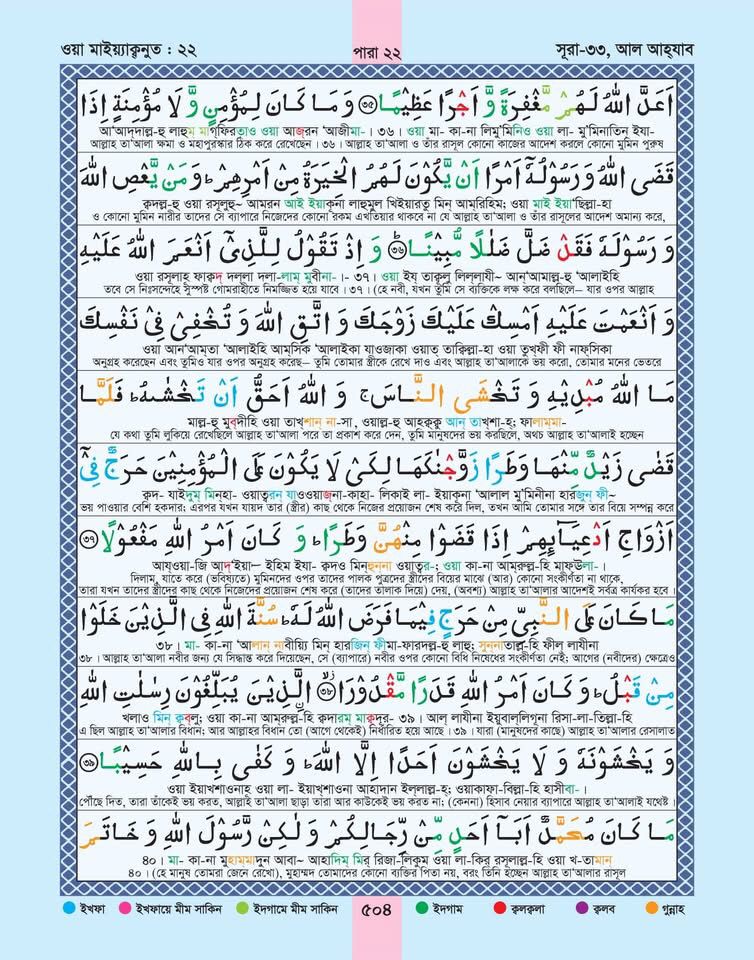 ওয়া মাইয়্যাক্বনুত : ২২
পারা ২২
সূরা-৩৩, আল আহ্‌যাব
اَعَدَّ اللّٰهُ لَهُمْ مَّغْفِرَةً وَّ اَجْرًا عَظِيْمًا ۝۳۵ وَ مَا كَانَ لِمُؤْمِنٍ وَّ لَا مُؤْمِنَةٍ اِذَا
আ‘আদ্দাল্ল-হু লাহুম মাগফিরতাও ওয়া আজ্‌রন ‘আজীমা-। ৩৬। ওয়া মা- কা-না লিমু'মিনিও ওয়া লা- মু'মিনাতিন্ ইযা-
আল্লাহ তা‘আলা ক্ষমা ও মহাপুরস্কার ঠিক করে রেখেছেন। ৩৬। আল্লাহ তা‘আলা ও তাঁর রাসূল কোনো কাজের আদেশ করলে কোনো মুমিন পুরুষ
قَضَى اللّٰهُ وَ رَسُوْلُهٗۤ اَمْرًا اَنْ يَّكُوْنَ لَهُمُ الْخِيَرَةُ مِنْ اَمْرِهِمْ ؕ وَ مَنْ يَّعْصِ اللّٰهَ
ক্বদল্ল-হু ওয়া রসূলুহূ~ আমরন আই ইয়াকূনা লাহুমুল খিইয়ারতু মিন্ আম্‌রিহিম; ওয়া মাই ইয়া‘ছিল্লা-হা
ও কোনো মুমিন নারীর তাদের সে ব্যাপারে নিজেদের কোনো রকম এখতিয়ার থাকবে না যে আল্লাহ তা‘আলা ও তাঁর রাসূলের আদেশ অমান্য করে,
وَ رَسُوْلَهٗ فَقَدْ ضَلَّ ضَلٰلًا مُّبِيْنًا ۝۳۶ وَ اِذْ تَقُوْلُ لِلَّذِيْۤ اَنْعَمَ اللّٰهُ عَلَيْهِ
ওয়া রসূলাহূ ফাক্বদ্ দল্লা দলা-লাম্ মুবীনা-।- ৩৭। ওয়া ইয্ তাকূলু লিল্লাযী~ আন্‘আমাল্ল-হু ‘আলাইহি
তবে সে নিঃসন্দেহে সুস্পষ্ট গোমরাহীতে নিমজ্জিত হয়ে যাবে। ৩৭। (হে নবী, যখন তুমি সে ব্যক্তিকে লক্ষ করে বলছিলে– যার ওপর আল্লাহ
وَ اَنْعَمْتَ عَلَيْهِ اَمْسِكْ عَلَيْكَ زَوْجَكَ وَ اتَّقِ اللّٰهَ وَ تُخْفِيْ فِيْ نَفْسِكَ
ওয়া আন‘আম্‌তা ‘আলাইহি আম্‌সিক ‘আলাইকা যাওজাকা ওয়াত্ তাক্বিল্লা-হা ওয়া তুখ্‌ফী ফী নাফ্‌সিকা
অনুগ্রহ করেছেন এবং তুমিও যার ওপর অনুগ্রহ করেছ– তুমি তোমার স্ত্রীকে রেখে দাও এবং আল্লাহ তা‘আলাকে ভয় করো, তোমার মনের ভেতরে
مَا اللّٰهُ مُبْدِيْهِ وَ تَخْشَى النَّاسَ ۚ وَ اللّٰهُ اَحَقُّ اَنْ تَخْشٰىهُ ؕ فَلَمَّا
মাল্ল-হু মুব্‌দীহি ওয়া তাখশান্ না-সা, ওয়াল্ল-হু আহক্বক্বু আন্ তাখ্‌শা-হ; ফালাম্‌মা-
যে কথা তুমি লুকিয়ে রেখেছিলে আল্লাহ তা‘আলা পরে তা প্রকাশ করে দেন, তুমি মানুষদের ভয় করছিলে, অথচ আল্লাহ তা‘আলাই হচ্ছেন
قَضٰى زَيْدٌ مِّنْهَا وَطَرًا زَوَّجْنٰكَهَا لِكَيْ لَا يَكُوْنَ عَلَى الْمُؤْمِنِيْنَ حَرَجٌ فِيْۤ
ক্বদ- যাইদুম্ মিন্‌হা- ওয়াত্বরন্ যাওওয়াজ্‌না-কাহা- লিকাই লা- ইয়াকূনা 'আলাল মু'মিনীনা হারজুন্ ফী~
ভয় পাওয়ার বেশি হকদার; এরপর যখন যায়দ তার (স্ত্রীর) কাছ থেকে নিজের প্রয়োজন শেষ করে দিল, তখন আমি তোমার সঙ্গে তার বিয়ে সম্পন্ন করে
اَزْوَاجِ اَدْعِيَآىِٕهِمْ اِذَا قَضَوْا مِنْهُنَّ وَطَرًا ؕ وَ كَانَ اَمْرُ اللّٰهِ مَفْعُوْلًا ۝۳۷
আয্‌ওয়া-জি আদ্‌‘ইয়া— ইহিম ইযা- ক্বদও মিন্‌হুন্না ওয়াত্বর-; ওয়া কা-না আম্‌রুল্ল-হি মাফ্‌ঊলা-।
দিলাম, যাতে করে (ভবিষ্যতে) মুমিনদের ওপর তাদের পালক পুত্রদের স্ত্রীদের বিয়ের মাঝে (আর) কোনো সংকীর্ণতা না থাকে,
তারা যখন তাদের স্ত্রীদের কাছ থেকে নিজেদের প্রয়োজন শেষ করে (তাদের তালাক দিয়ে) দেয়, (অবশ্য) আল্লাহ তা‘আলার আদেশই সর্বত্র কার্যকর হবে।
مَا كَانَ عَلَى النَّبِيِّ مِنْ حَرَجٍ فِيْمَا فَرَضَ اللّٰهُ لَهٗ ؕ سُنَّةَ اللّٰهِ فِي الَّذِيْنَ خَلَوْا
৩৮। মা- কা-না ‘আলান্ নাবীয়্যি মিন্ হারজিন্ ফীমা-ফারদল্ল-হু লাহু; সুন্নাতাল্ল-হি ফীল্ লাযীনা
৩৮। আল্লাহ তা‘আলা নবীর জন্য যে সিদ্ধান্ত করে দিয়েছেন, সে (ব্যাপারে) নবীর ওপর কোনো বিধি নিষেধের সংকীর্ণতা নেই; আগের (নবীদের) ক্ষেত্রেও
مِنْ قَبْلُ ؕ وَ كَانَ اَمْرُ اللّٰهِ قَدَرًا مَّقْدُوْرًا ۝۳۸ۙ الَّذِيْنَ يُبَلِّغُوْنَ رِسٰلٰتِ اللّٰهِ
খলাও মিন্ ক্ববলু; ওয়া কা-না আম্‌রুল্ল-হি ক্বদারম্ মাক্বদূর- ৩৯। আল্ লাযীনা ইয়ুবাল্‌লিগূনা রিসা-লা-তিল্লা-হি
এ ছিল আল্লাহ তা‘আলার বিধান; আর আল্লাহর বিধান তো (আগে থেকেই) নির্ধারিত হয়ে আছে। ৩৯। যারা (মানুষদের কাছে) আল্লাহ তা‘আলার রেসালাত
وَ يَخْشَوْنَهٗ وَ لَا يَخْشَوْنَ اَحَدًا اِلَّا اللّٰهَ ؕ وَ كَفٰى بِاللّٰهِ حَسِيْبًا ۝۳۹
ওয়া ইয়াখশাওনাহূ ওয়া লা- ইয়াখ্‌শাওনা আহাদান ইল্লাল্ল-হ; ওয়াকাফা-বিল্লা-হি হাসীবা-।
পৌঁছে দিত, তারা তাঁকেই ভয় করত, আল্লাহ তা‘আলা ছাড়া তারা আর কাউকেই ভয় করত না; (কেননা) হিসাব নেয়ার ব্যাপারে আল্লাহ তা‘আলাই যথেষ্ট।
مَا كَانَ مُحَمَّدٌ اَبَاۤ اَحَدٍ مِّنْ رِّجَالِكُمْ وَ لٰكِنْ رَّسُوْلَ اللّٰهِ وَ خَاتَمَ
৪০। মা- কা-না মুহাম্মাদুন আবা~ আহাদিম্ মির্ রিজা-লিকুম ওয়া লা-কির রসূলাল্ল-হি ওয়া খ-তামান
৪০। (হে মানুষ তোমরা জেনে রেখো), মুহাম্মদ তোমাদের কোনো ব্যক্তির পিতা নয়, বরং তিনি হচ্ছেন আল্লাহ তা‘আলার রাসূল
ইখফা ইখফায়ে মীম সাকিন ইদগামে মীম সাকিন ৫০৪ ইদগাম ক্বলক্বলা ক্বলব গুন্নাহ